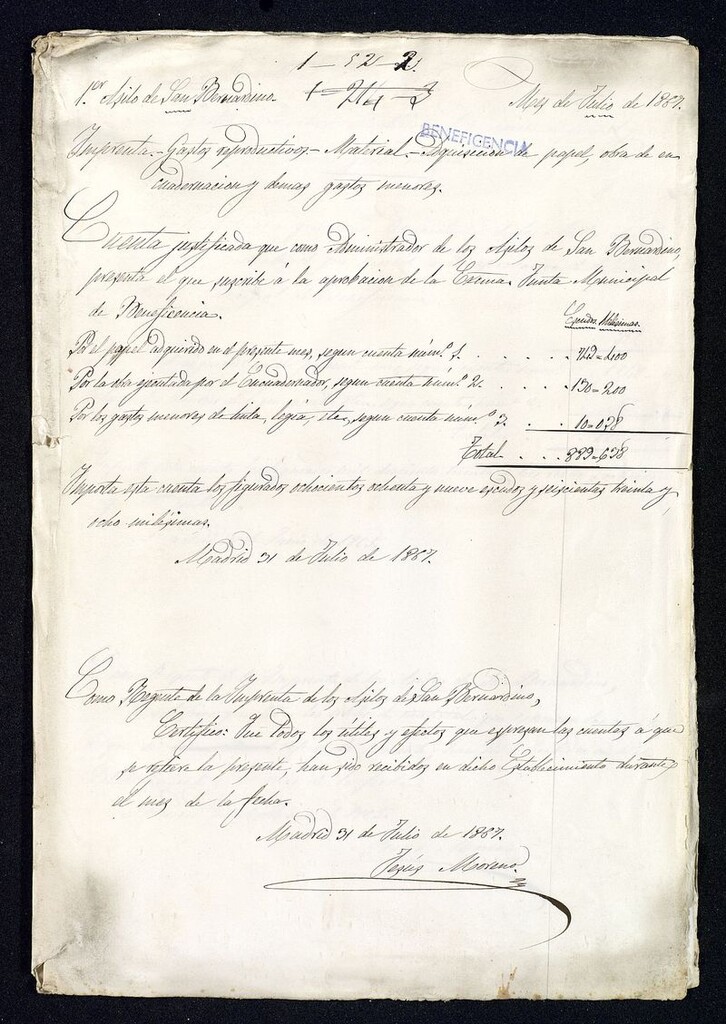 1-52-2.
1-24-3
1.er Asilo de San Bernardino.
Mes de Julio de 1867.
BENEFICENCIA
Imprenta.- Gastos reproductivos.- Material.- Adquisicion de papel, obra de en
cuadernacion y demas gastos menores.
Cuenta justificada que como Administrador de los Asilos de San Bernardino,
presenta el que suscribe á la aprobacion de la Excma. Junta Municipal
de Beneficencia.
Escudos Milésimas.
Por el papel adquirido en el presente mes, segun cuenta núm.º 1. . . . . 749=400
Por la obra ejecutada por el Encuadernador, segun cuenta núm.º 2. . . . . 130=200
Por los gastos menores de hilo, legia, etc., segun cuenta núm.º 3. . . 10=038
Total . . . 889=638
Importa esta cuenta los figurados ochocientos ochenta y nueve escudos y seiscientas treinta y
ocho milésimas.
Madrid 31 de Julio de 1867.
Como Regente de la Imprenta de los Asilos de San Bernardino,
Certifico: Que todos los útiles y efectos que espresan las cuentas á que
se refiere la presente, han sido recibidos en dicho Establecimiento durante
el mes de la fecha.
Madrid 31 de Julio de 1867.
Jesús Moreno.